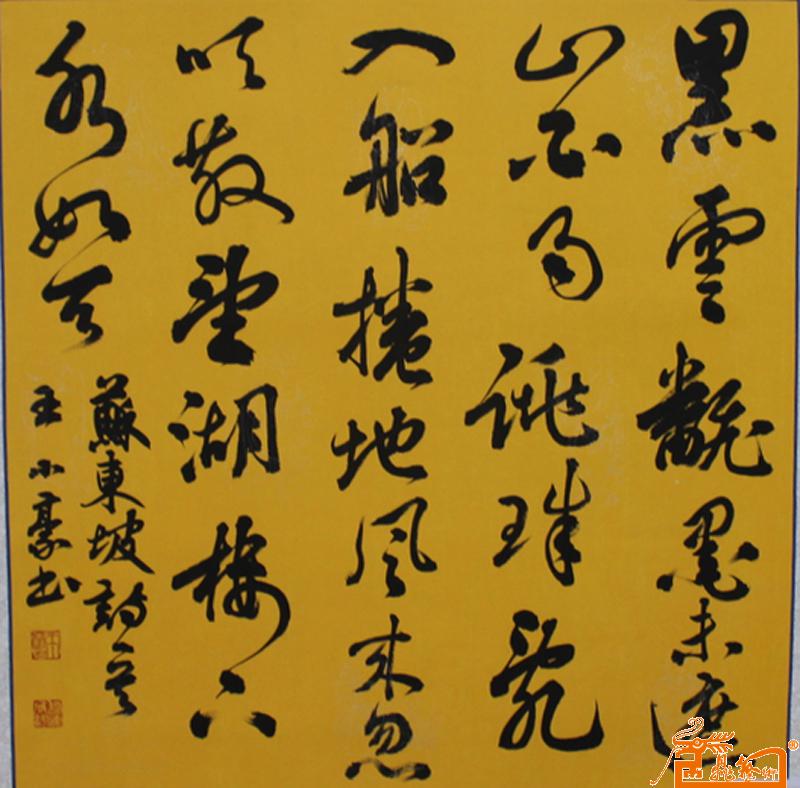 黑雲翻墨未遮
山白雨跳珠亂
入船捲地风来忽
吹散望湖樓下
水如天
蘇東坡詩一首
王小豪书